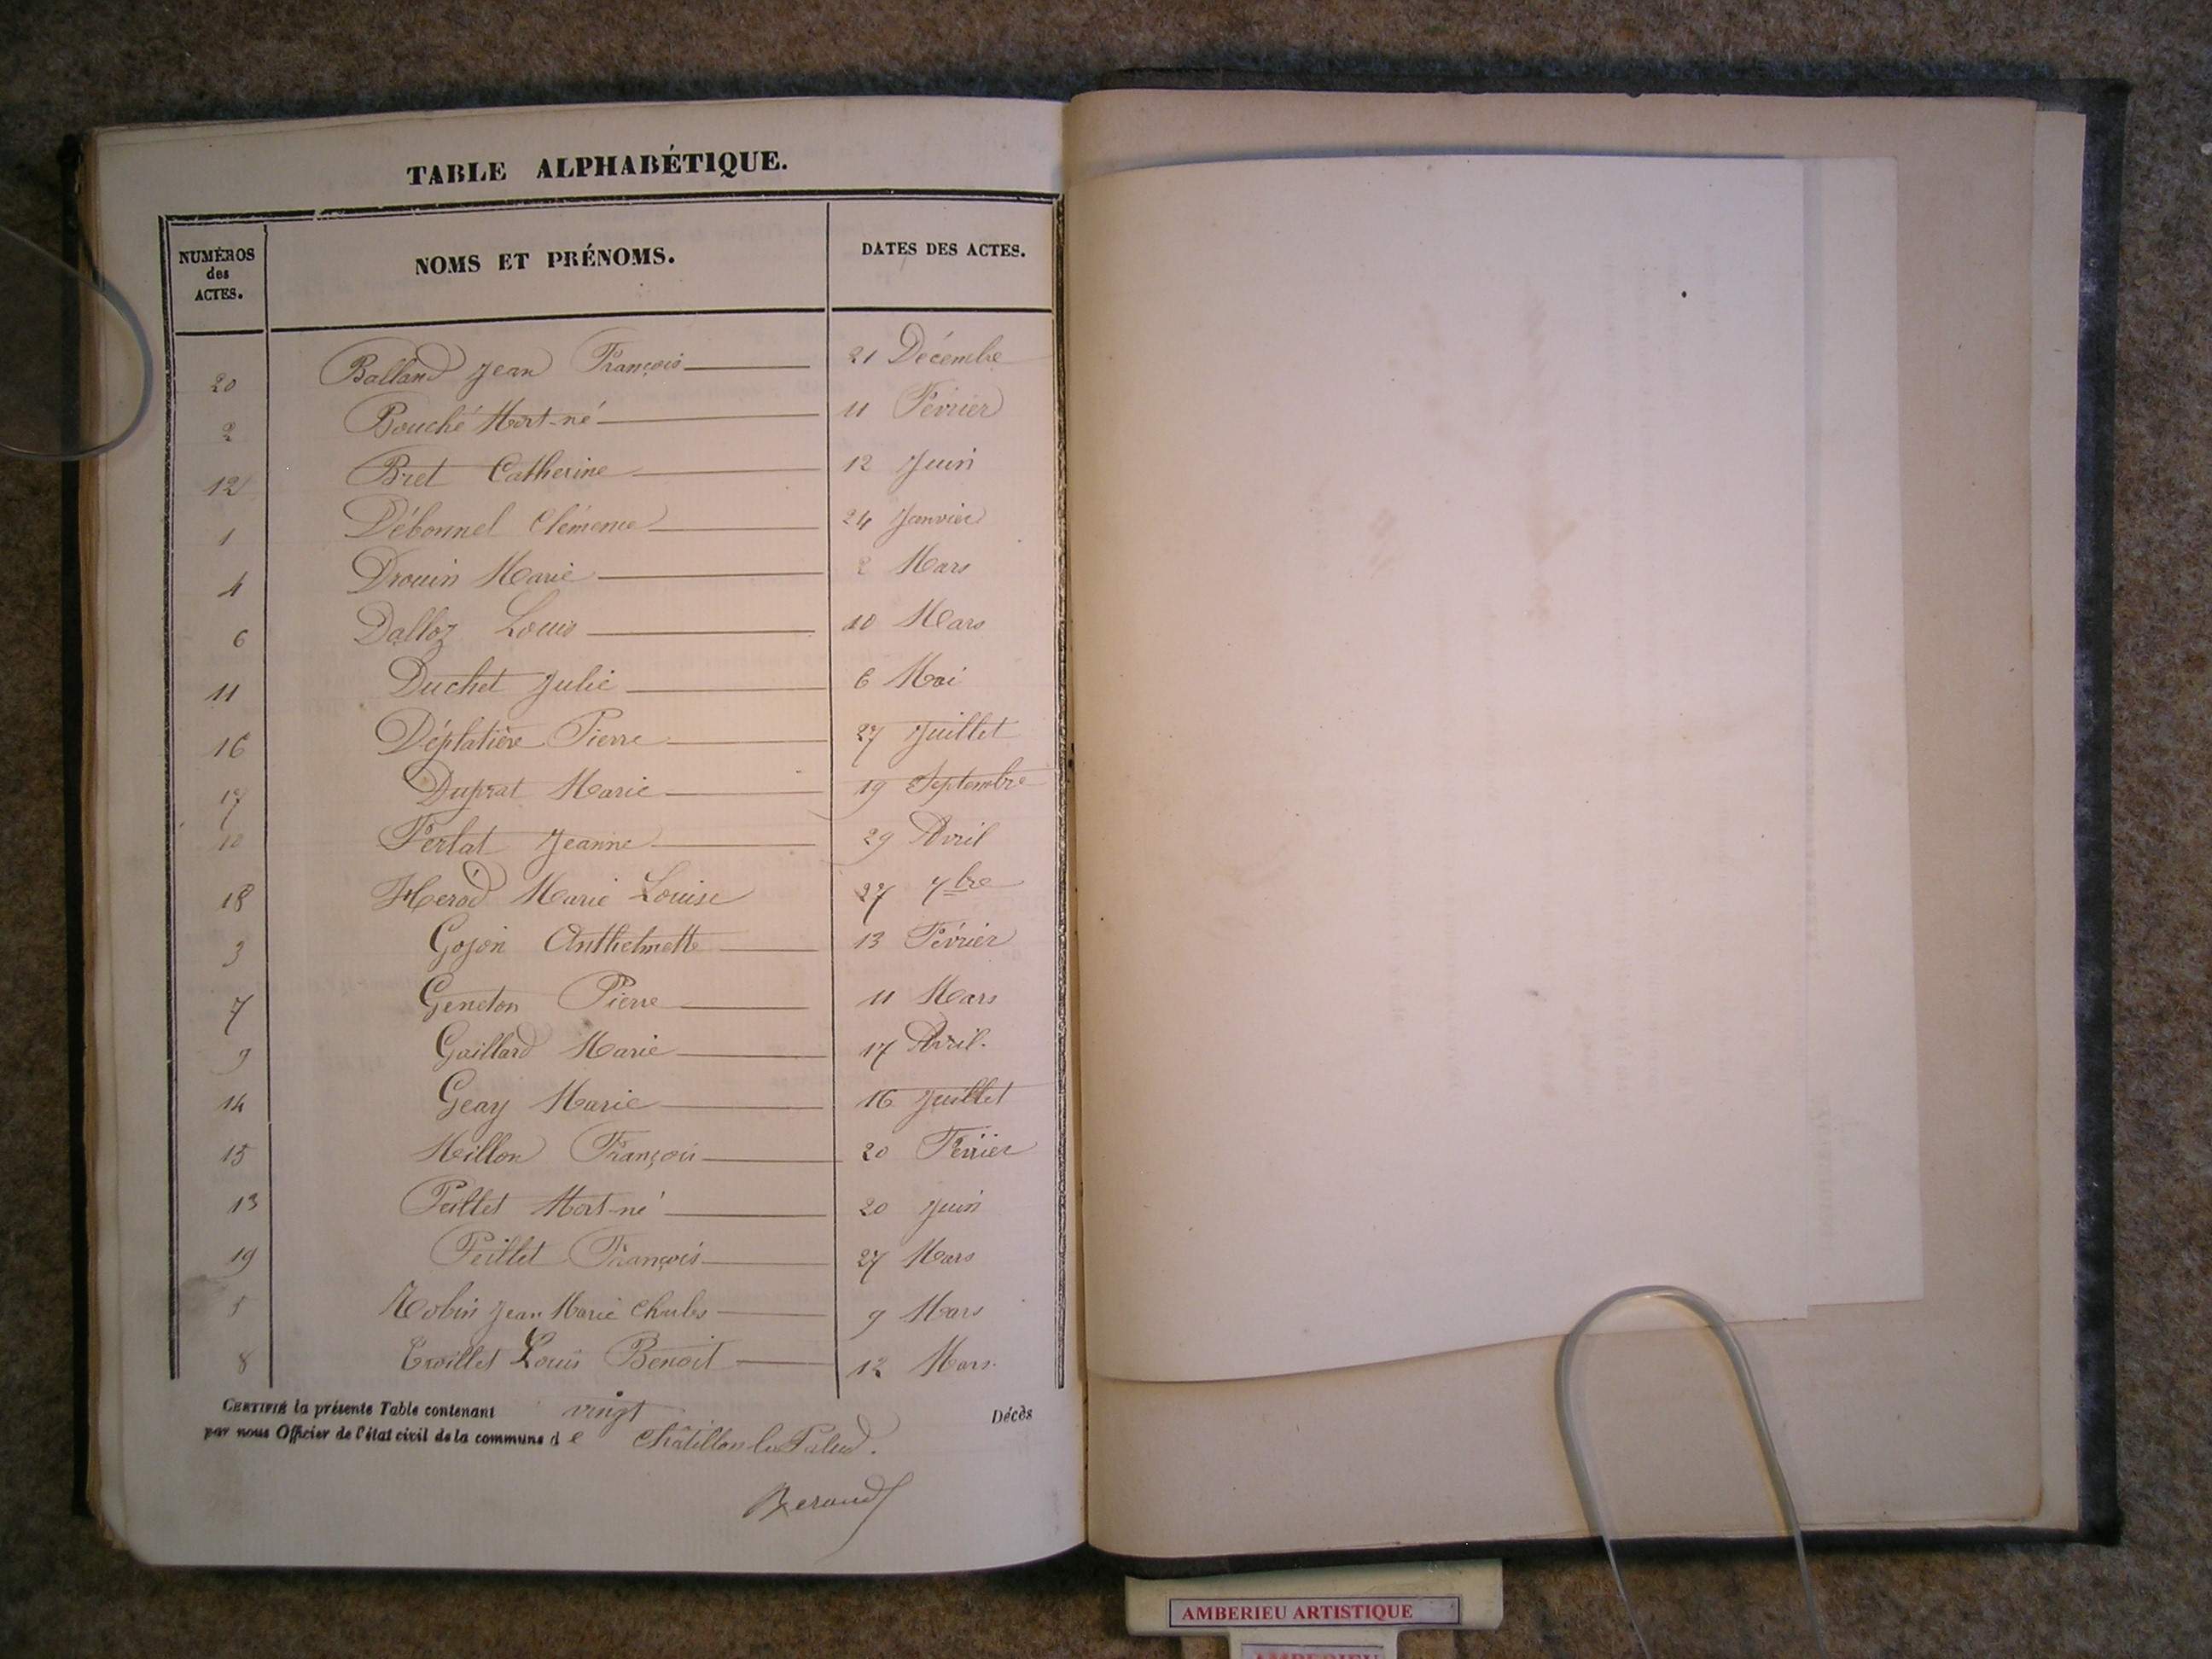 TABLE ALPHABÉTIQUE.
NUMÉROS des ACTES. NOMS ET PRÉNOMS. DATES DES ACTES.
20 Balland Jean François 21 Décembre
2 Bouché Mort-né 11 Février
12 Bret Catherine 12 Juin
1 Débonnel Clémence 24 Janvier
4 Drouin Marie 2 Mars
6 Dalloz Louis 10 Mars
11 Duchet Julie 6 Mai
16 Déplatière Pierre 27 Juillet
17 Duprat Marie 19 Septembre
10 Ferlat Jeanne 29 Avril
18 Herod Marie Louise 27 7bre
3 Gojon Anthelmette 13 Février
7 Pierre 11 Mars
9 Gaillard Marie 17 Avril.
14 Geay Marie 16 Juillet
15 Millon François 20 Février
13 Peillet Mort-né 20 Juin
19 Peillet François 27 Mars
5 Robin Jean Marie Charles 9 Mars
8 Louis Benoit 12 Mars.
CERTIFIÉ la présente Table contenant vingt Décès
par nous Officier de l'état civil de la commune de Châtillon la Palud.
Beraud
AMBERIEU ARTISTIQUE
AMBERIEU